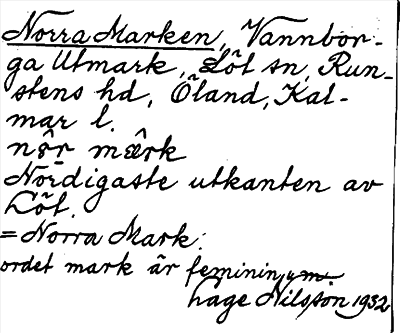 Norra Marken, Vannbor-
ga Utmark, Löt sn, Run-
stens hd, Öland, Kal-
mar l.
nør mærk
Nordigaste utkanten av
Löt.
= Norra Mark.
ordet mark är feminin
Åge Nilsson 1932